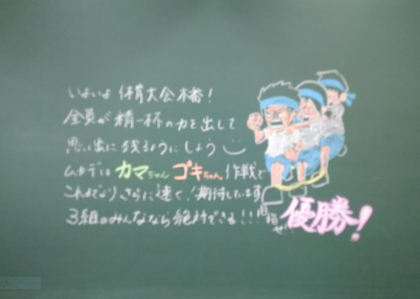 いよいよ体育大会本番!
全員が精一杯の力を出して
思い出に残るようにしよう
ムカデはカマちゃんゴキちゃん作戦で
これまでよりさらに速く!期待しています
3組のみんななら絶対できる!!!目指せ
優勝!